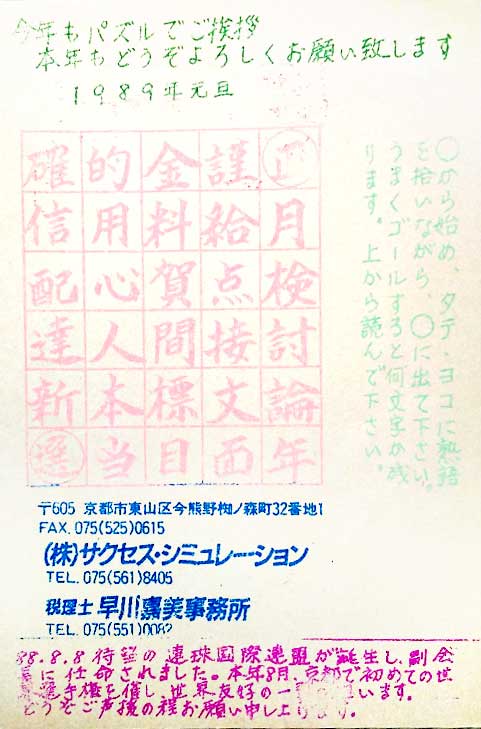 今年もパズルでご挨拶
本年もどうぞよろしくお願い致します
1989年元旦
確的金謹正
信用料給月
配心賀点検
達人間接討
新本標文論
選当目面年
〇から始め、タテ・ヨコに熟語
を拾いながら、〇に出て下さい。
うまくゴールすると何文字か残
ります。上から読んで下さい。
〒605 京都市東山区今熊野椥ノ森町32番地1
FAX. 075(525)0615
(株)サクセス・シミュレーション
TEL. 075(561)8405
税理士 早川嘉美事務所
TEL. 075(551)0082
'88.8.8 待望の連珠国際連盟が誕生し、副会
長に任命されました。本年8月、京都で初めての世
界選手権を催し、世界友好の一 います。
どうぞご声援の程お願い申し上げます。